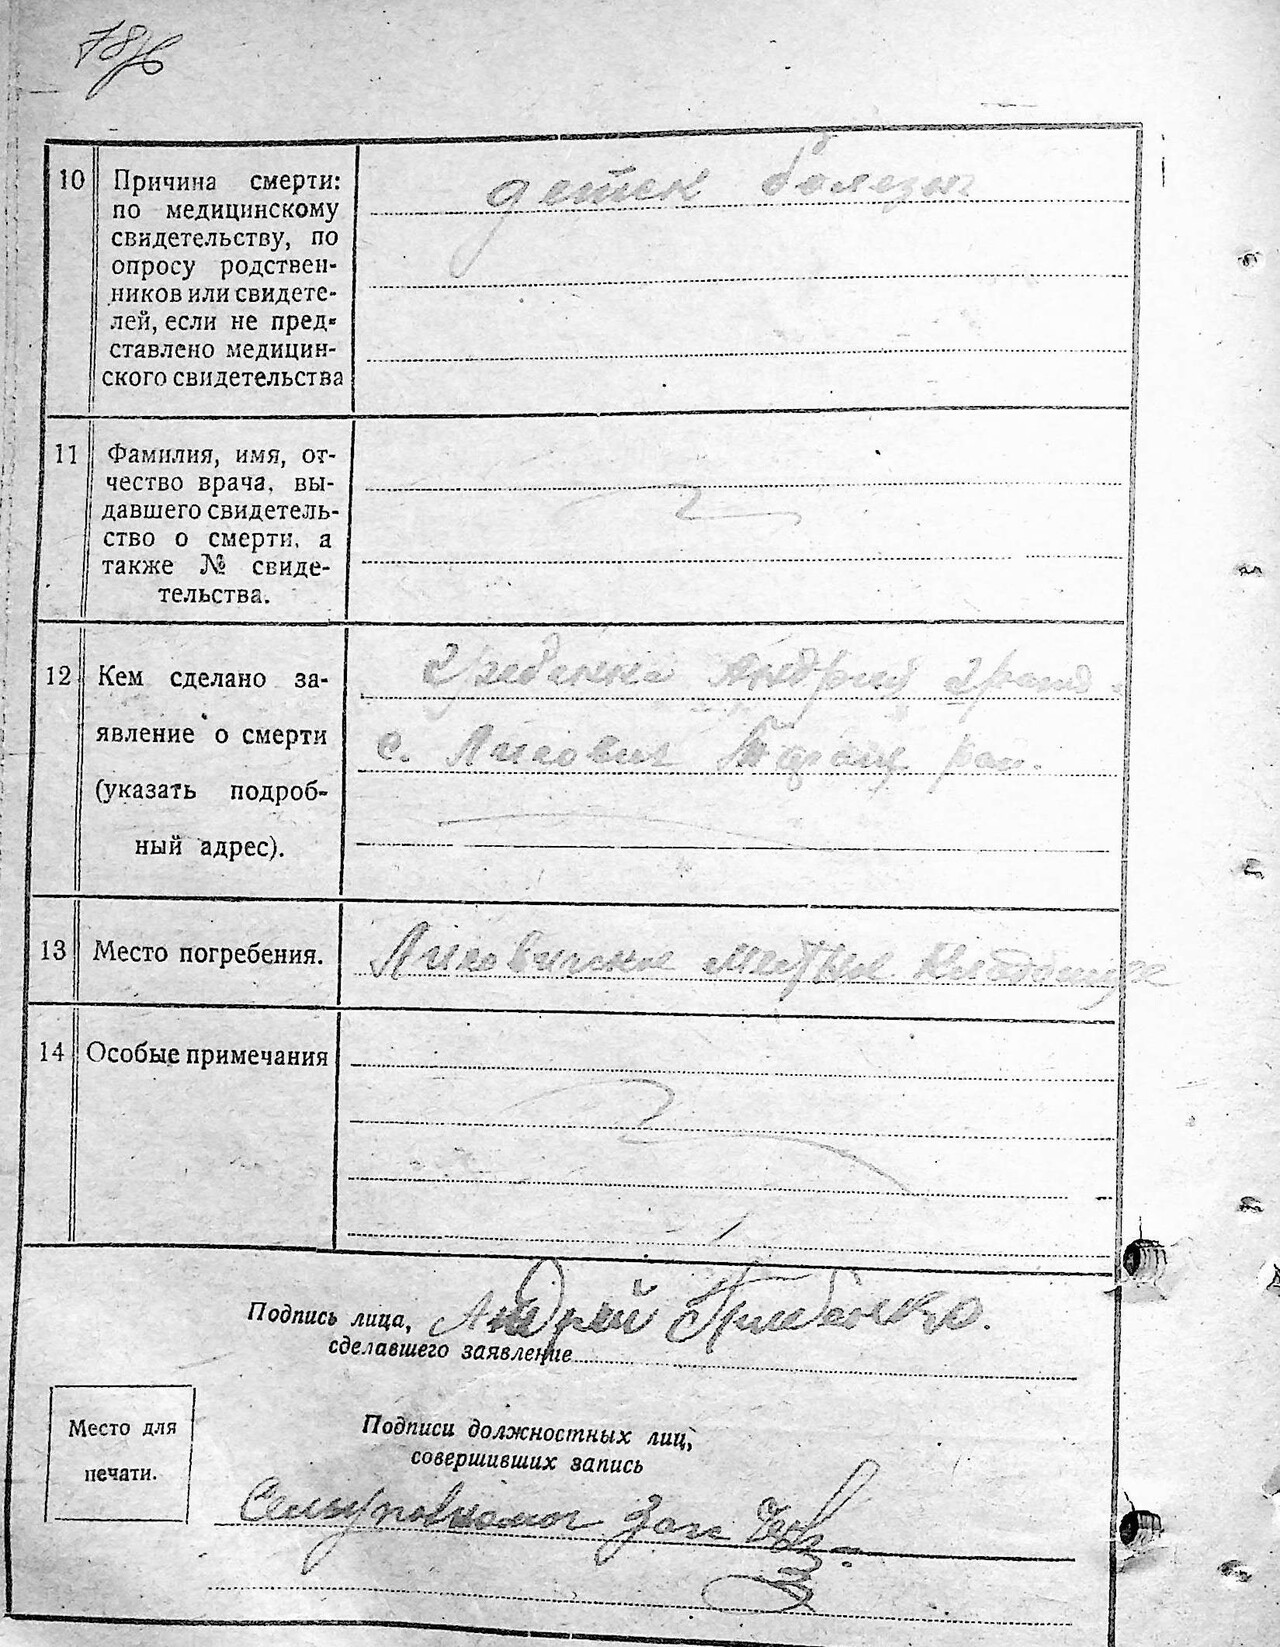 10 Причина смерти:
по медицинскому
свидетельству, по
опросу родствен-
ников или свидете-
лей, если не пред-
ставлено медицин-
ского свидетельства
детск болезн
11 Фамилия, имя, от-
чество врача, вы-
давшего свидетель-
ство о смерти, а
также № свиде-
тельства.
12 Кем сделано за-
явление о смерти
(указать подроб-
ный адрес).
Андрий
с. Лисович Таращ рай.
13 Место погребения.
14 Особые примечания
Подпись лица, Андрій
сделавшего заявление
Место для
печати.
Подписи должностных лиц,
совершивших запись